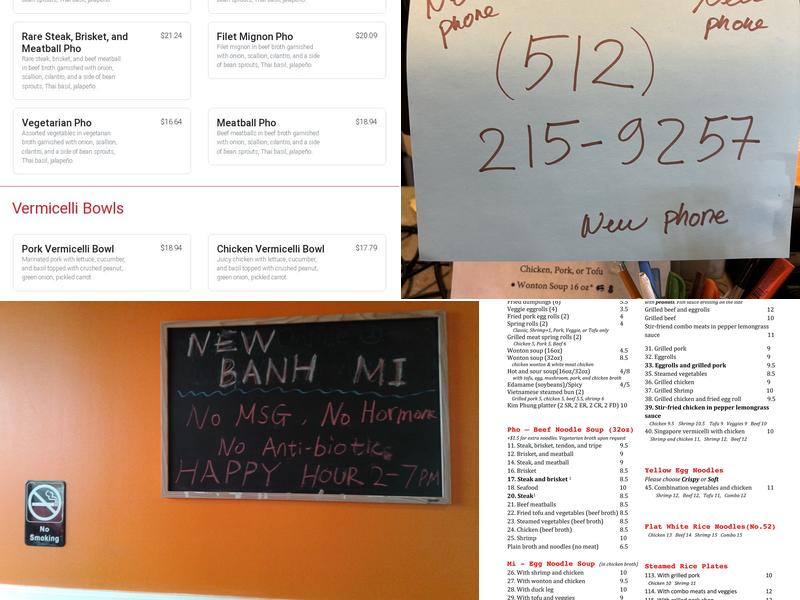 Rare Steak, Brisket, and
Meatball Pho
$21.24
Rare steak, brisket, and beef meatball
in beef broth garnished with onion,
scallion, cilantro, and a side of bean
sprouts, Thai basil, jalapeño.
Filet Mignon Pho
$20.09
Filet mignon in beef broth garnished
with onion, scallion, cilantro, and a side
of bean sprouts, Thai basil, jalapeño.
Vegetarian Pho
$16.64
Assorted vegetables in vegetarian
broth garnished with onion, scallion,
cilantro, and a side of bean sprouts,
Thai basil, jalapeño.
Meatball Pho
$18.94
Beef meatballs in beef broth garnished
with onion, scallion, cilantro, and a side
of bean sprouts, Thai basil, jalapeño.
Vermicelli Bowls
Pork Vermicelli Bowl
$18.94
Marinated pork with lettuce, cucumber,
and basil topped with crushed peanut,
green onion, pickled carrot.
Chicken Vermicelli Bowl
$17.79
Juicy chicken with lettuce, cucumber,
and basil topped with crushed peanut,
green onion, pickled carrot.
phone
phone
(512)
215-9257
New phone
Chicken, Pork, or Tofu
• Wonton Soup 16 oz*
NEW
BANH MI
No MSG, No Hormone
No Anti-biotic
HAPPY HOUR 2-7PM
No
Smoking
Fried dumplings (6) 5.5
Veggie eggrolls (4) 3.5
Fried pork egg rolls (2) 4
Spring rolls (2) 4
Classic, Shrimp+1, Pork, Veggie, or Tofu only
Grilled meat spring rolls (2)
Chicken 5, Pork 5, Beef 6
Wonton soup (16oz) 4.5
Wonton soup (32oz) 8.5
chicken wonton & white meat chicken
Hot and sour soup(16oz/32oz) 4/8
with tofu, egg, mushroom, pork, and chicken broth
Edamame (soybeans)/Spicy 4/5
Vietnamese steamed bun (2)
Grilled pork 5, chicken 5, beef 5.5, shrimp 6
Kim Phung platter (2 SR, 2 ER, 2 CR, 2 FD) 10
Pho – Beef Noodle Soup (32oz)
+$1.5 for extra noodles. Vegetarian broth upon request
11. Steak, brisket, tendon, and tripe 9.5
12. Brisket, and meatball 9
14. Steak, and meatball 9
16. Brisket 8.5
17. Steak and brisket 8.5
18. Seafood 10
20. Steak 8.5
21. Beef meatballs 8.5
22. Fried tofu and vegetables (beef broth) 8.5
23. Steamed vegetables (beef broth) 8.5
24. Chicken (beef broth) 8.5
25. Shrimp 10
Plain broth and noodles (no meat) 6.5
Mi – Egg Noodle Soup (in chicken broth)
26. With shrimp and chicken 10
27. With wonton and chicken 9.5
28. With duck leg 10
29. With tofu and veggies 9
with peanuts. Fish sauce dressing on the side
Grilled beef and eggrolls 12
Grilled beef 10
Stir-fried combo meats in pepper lemongrass
sauce 11
31. Grilled pork 9
32. Eggrolls 9
33. Eggrolls and grilled pork 9.5
35. Steamed vegetables 8.5
36. Grilled chicken 9
37. Grilled Shrimp 10
38. Grilled chicken and fried egg roll 9.5
39. Stir-fried chicken in pepper lemongrass
sauce 9
Chicken 9.5 Shrimp 10.5 Tofu 9 Veggies 9 Beef 10
40. Singapore vermicelli with chicken 10
Shrimp and chicken 11, Shrimp 12, Beef 12
Yellow Egg Noodles
Please choose Crispy or Soft
45. Combination vegetables and chicken 11
Shrimp 12, Beef 12, Tofu 11, Combo 12
Flat White Rice Noodles(No.52)
Chicken 13 Beef 14 Shrimp 15 Combo 15
Steamed Rice Plates
113. With grilled pork 10
Chicken 10 Shrimp 11
114. With combo meats and veggies 12